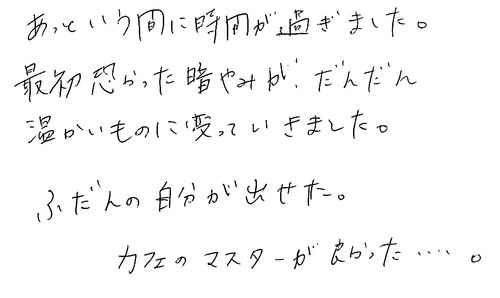 あっという間に時間が過ぎました。
最初恐かった暗やみが、だんだん
温かいものに変っていきました。
ふだんの自分が出せた。
カフェのマスターが良かった‥‥。